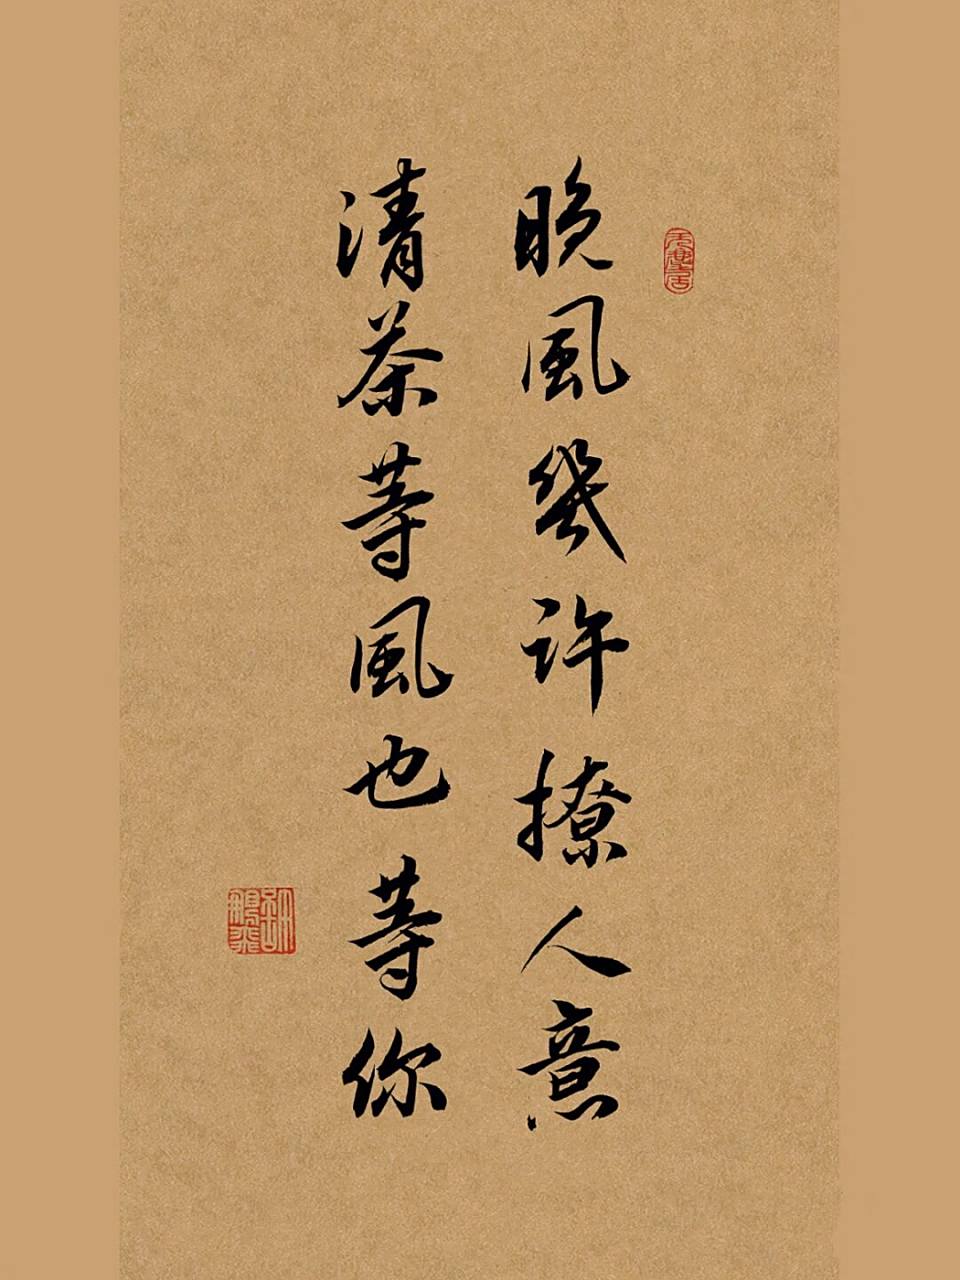 晚風幾許撩人意
清茶等風也等你